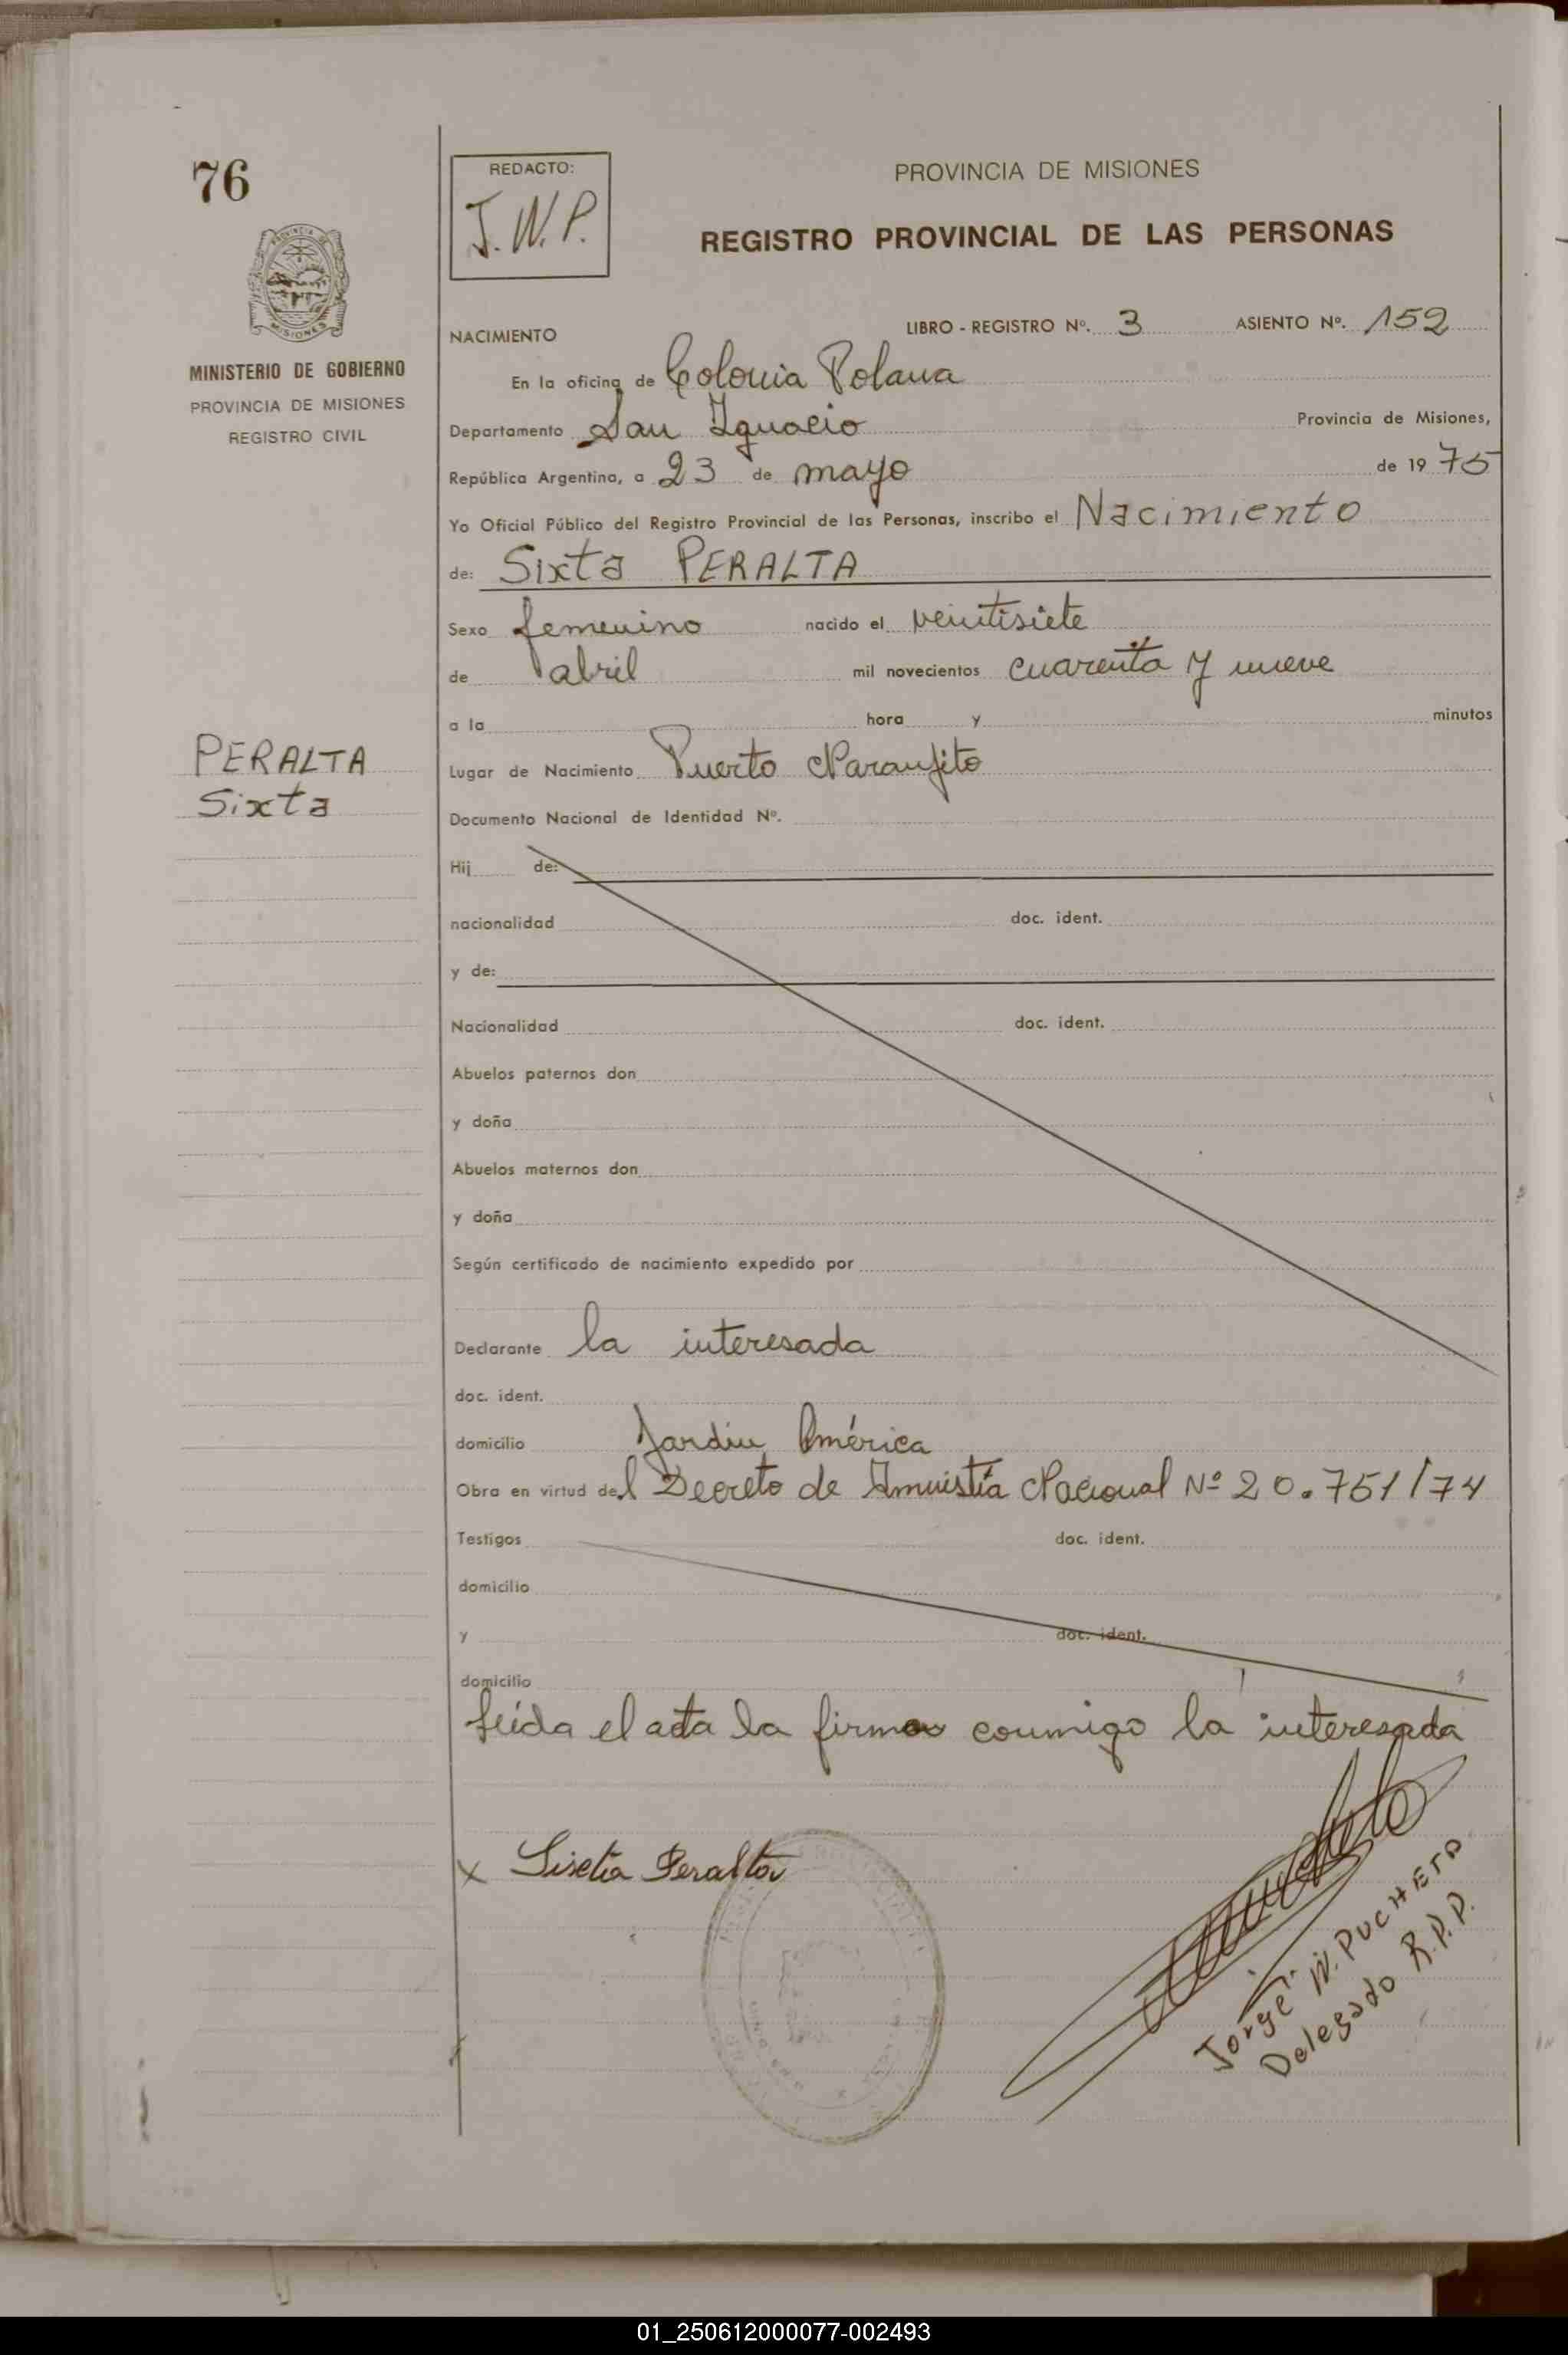 76
REDACTO:
J.W.P.
PROVINCIA DE MISIONES
REGISTRO PROVINCIAL DE LAS PERSONAS
MINISTERIO DE GOBIERNO
PROVINCIA DE MISIONES
REGISTRO CIVIL
NACIMIENTO LIBRO - REGISTRO Nº. 3 ASIENTO Nº. 152
En la oficina de Colonia Polana
Departamento San Ignacio Provincia de Misiones,
República Argentina, a 23 de mayo de 19 75
Yo Oficial Público del Registro Provincial de las Personas, inscribo el Nacimiento
de: Sixta PERALTA
Sexo femenino nacido el veintisiete
de abril mil novecientos cuarenta y nueve
a la hora y minutos
PERALTA
Sixta
Lugar de Nacimiento Puerto Naranjito
Documento Nacional de Identidad Nº.
Hij de:
nacionalidad doc. ident.
y de:
Nacionalidad doc. ident.
Abuelos paternos don
y doña
Abuelos maternos don
y doña
Según certificado de nacimiento expedido por
Declarante la interesada
doc. ident.
domicilio Jardin América
Obra en virtud del Decreto de Amnistía Nacional Nº 20.751/74
Testigos doc. ident.
domicilio
y doc. ident.
domicilio
Leída el acta la firma conmigo la interesada
x Sixta Peralta
Jorge W. PUCHETA
Delegado R.P.P.
01_250612000077-002493